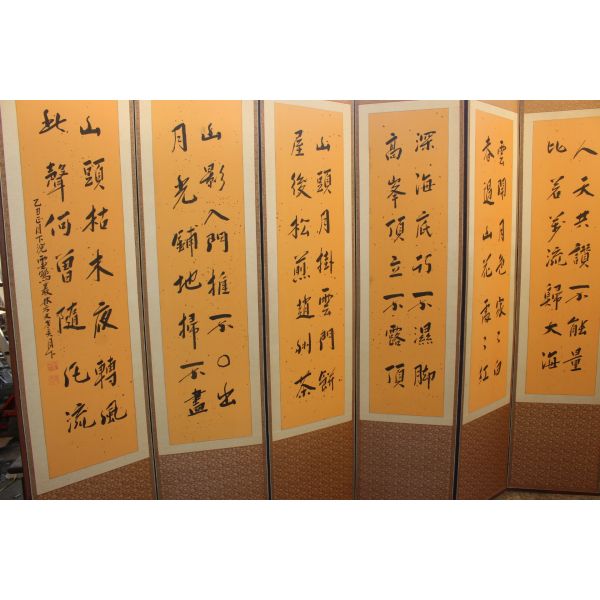 人天共讚不能量
比若萬流歸大海
雲開月色家〻白
春過山花處〻紅
深海底行不濕脚
高峯頂立不露頂
山頭月掛雲門餅
屋後松煎趙州茶
山影入門推不〇出
月光鋪地掃不盡
山頭枯木夜轉風
此聲何曾隨 流
乙丑正月下浣